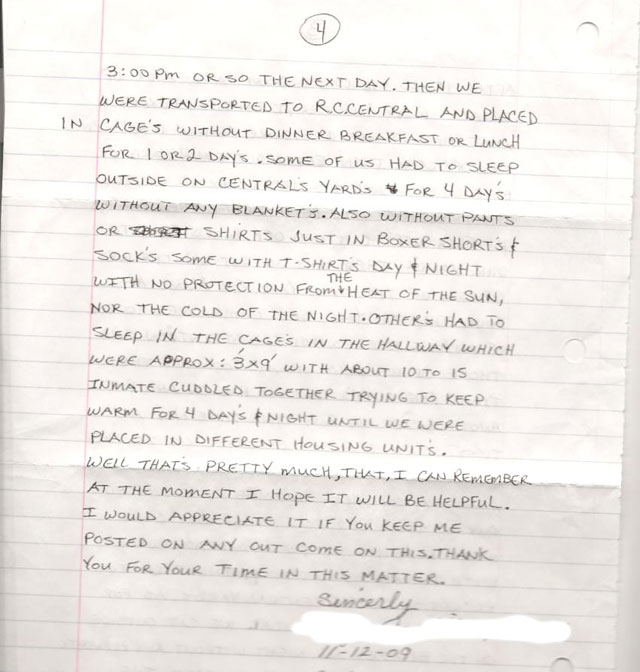 4
3:00 Pm OR SO THE NEXT DAY. THEN WE
WERE TRANSPORTED TO R.C.CENTRAL AND PLACED
IN CAGE'S WITHOUT DINNER BREAKFAST OR LUNCH
FOR 1 OR 2 DAY'S. SOME OF US HAD TO SLEEP
OUTSIDE ON CENTRAL'S YARD'S FOR 4 DAY'S
WITHOUT ANY BLANKET'S. ALSO WITHOUT PANTS
OR SHIRTS JUST IN BOXER SHORT'S &
SOCK'S SOME WITH T-SHIRT'S DAY & NIGHT
WITH NO PROTECTION FROM THE HEAT OF THE SUN,
NOR THE COLD OF THE NIGHT. OTHER'S HAD TO
SLEEP IN THE CAGE'S IN THE HALLWAY WHICH
WERE APPROX: 3'X9' WITH ABOUT 10 TO 15
INMATE CUDDLED TOGETHER TRYING TO KEEP
WARM FOR 4 DAY'S & NIGHT UNTIL WE WERE
PLACED IN DIFFERENT HOUSING UNIT'S.
WELL THAT'S PRETTY MUCH, THAT, I CAN REMEMBER
AT THE MOMENT I HOPE IT WILL BE HELPFUL.
I WOULD APPRECIATE IT IF YOU KEEP ME
POSTED ON ANY OUT COME ON THIS. THANK
YOU FOR YOUR TIME IN THIS MATTER.
Sincerly
11-12-09